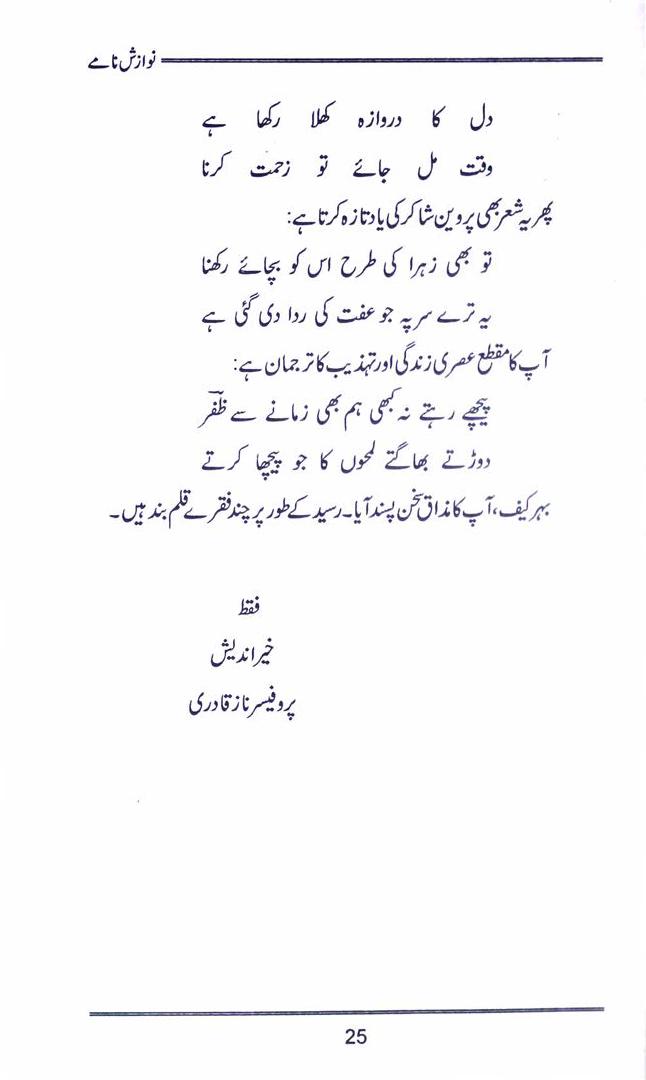 نوازش نامے
دل کا دروازہ کھلا رکھا ہے
وقت مل جائے تو زحمت کرنا
پھر یہ شعر بھی پروین شاکر کی یاد تازہ کرتا ہے:
تو بھی زہرا کی طرح اس کو بچائے رکھنا
یہ ترے سر پہ جو عفت کی ردا دی گئی ہے
آپ کا مقطع عصری زندگی اور تہذیب کا ترجمان ہے:
پیچھے رہتے نہ کبھی ہم بھی زمانے سے ظفرؔ
دوڑتے بھاگتے لمحوں کا جو پیچھا کرتے
بہر کیف، آپ کا مذاق سخن پسند آیا۔ رسید کے طور پر چند فقرے قلم بند ہیں۔
فقط
خیر اندیش
پروفیسر ناز قادری
25